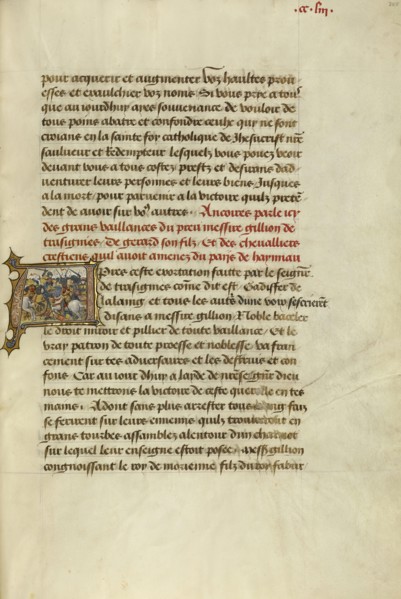 ·cc·liii·
pour acquerir et augmenter voz haultes prou
esses et exaulchier voz noms Si vous prye a tous
que au iourdhuy ayes souvenance de vouloir de
tous poins abatre et confondre ceulx quy ne sont
croians en la sainte foy catholique de Jhesucrist nr̃e
saulveur et Redempteur lesquelz vous povez veoir
devant vous a tous costez prestz et desirans dad
venturer leurs personnes et leurs biens Jusques
a la mort / pour parvenir a la victoire quilz preten
dent de avoir sur vo9 autres · Ancoires parle icy
des grans vaillances du preu messire gillion de
trasignies / De gerard son filz / Et des chevalliers
crestiens quil avoit amenez du pays de haynnau
Apres ceste exortation faitte par le seignr̃
de trasignies com̃e dit est / Gadiffer de
lalaing et tous les aut͛s dune voix sescrierent
disans a messire gillion / Noble bacelier
le droit miroir et pillier de toute vaillance / Et le
vray patron de toute proesse et noblesse va fran
cement sur tes adversaires et les destruis et con
fons Car au iour dhuy a layde de nr̃e seignr̃ dieu
nous te mettrons la victoire de ceste querelle en tes
mains / Adont sans plus arrester tous faiz
se ferirent sur leurs ennemis quilz trouverent en
grans tourbes assamblez alentour dun chariot
sur lequel leur enseigne estoit posee / Mess̃ gillion
congnoissant le roy de morienne filz du roy fabur